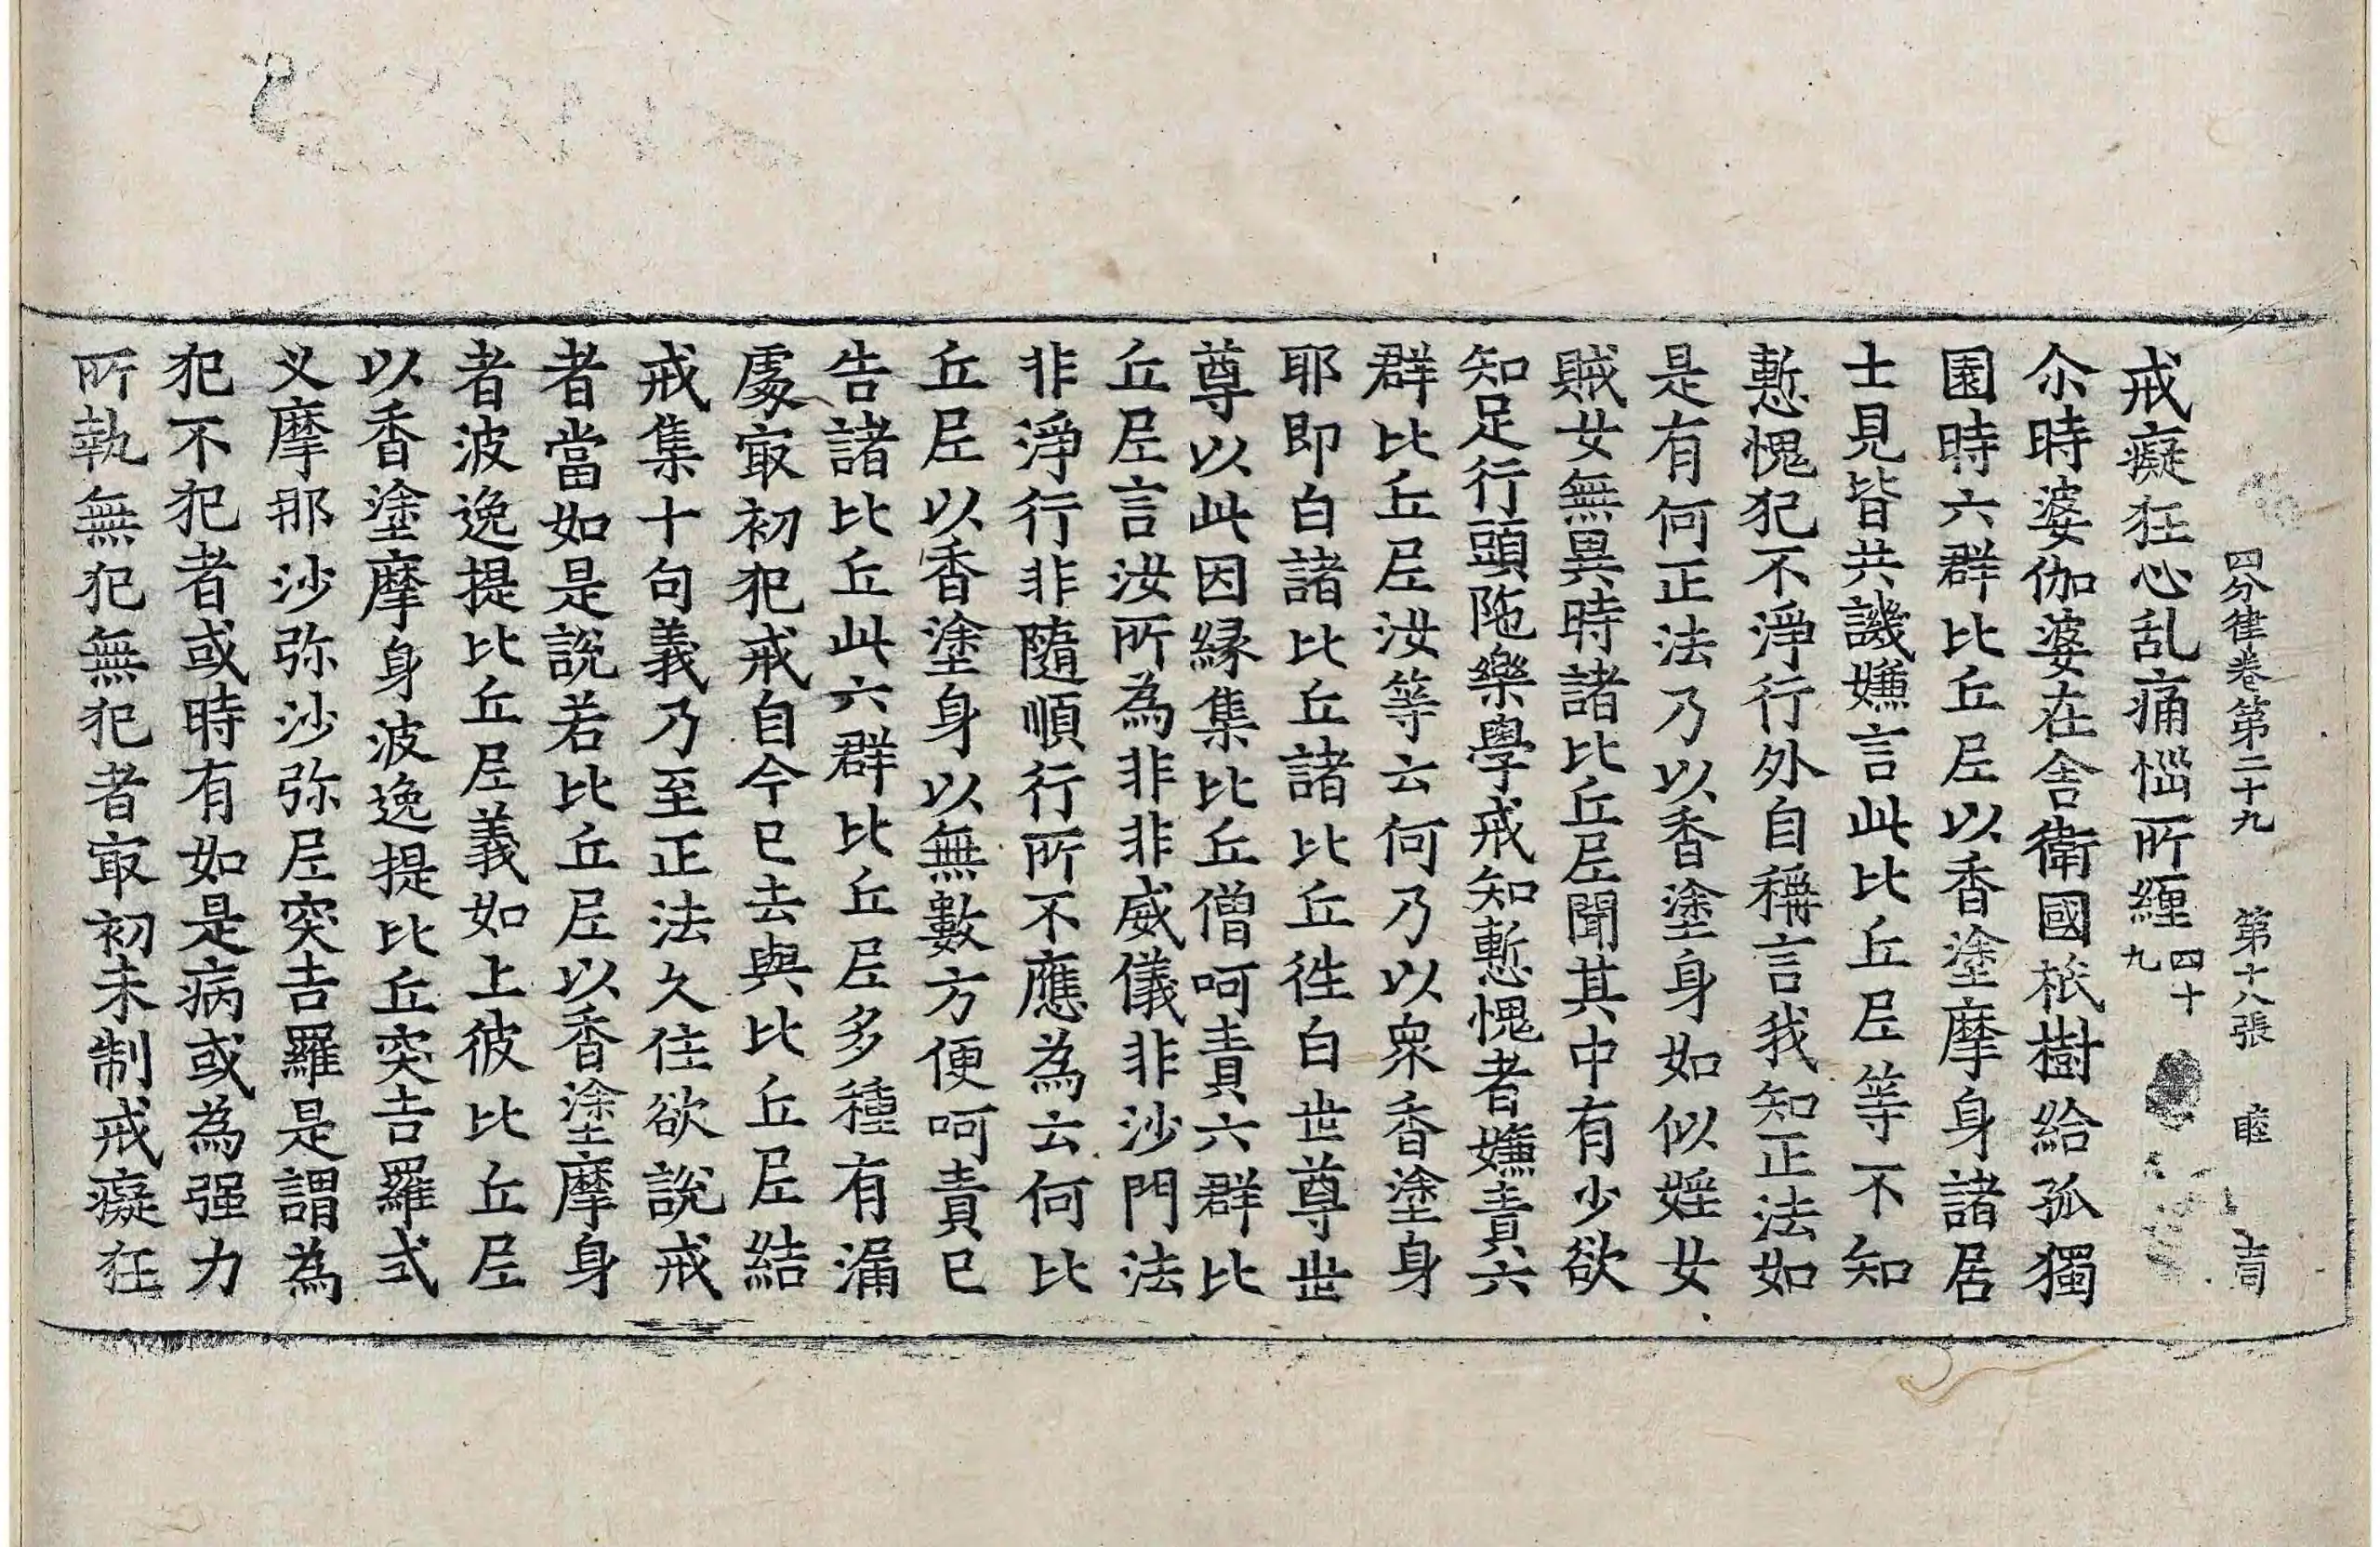 四分律卷第二十九 第十八張 睦
戒癡狂心乱痛惱所纏四十九
尒時婆伽婆在舍衛國祇樹給孤獨
園時六群比丘尼以香塗摩身諸居
士見皆共譏嫌言此比丘尼等不知
慙愧犯不淨行外自稱言我知正法如
是有何正法乃以香塗身如似婬女
賊女無異時諸比丘尼聞其中有少欲
知足行頭陁樂學戒知慙愧者嫌責六
群比丘尼汝等云何乃以衆香塗身
耶即白諸比丘諸比丘徃白世尊世
尊以此因緣集比丘僧呵責六群比
丘尼言汝所為非非威儀非沙門法
非淨行非隨順行所不應為云何比
丘尼以香塗身以無數方便呵責已
告諸比丘此六群比丘尼多種有漏
處㝡初犯戒自今已去與比丘尼結
戒集十句義乃至正法久住欲說戒
者當如是說若比丘尼以香塗摩身
者波逸提比丘尼義如上彼比丘尼
以香塗摩身波逸提比丘突吉羅式
叉摩那沙弥沙弥尼突吉羅是謂為
犯不犯者或時有如是病或為强力
所執無犯無犯者㝡初未制戒癡狂